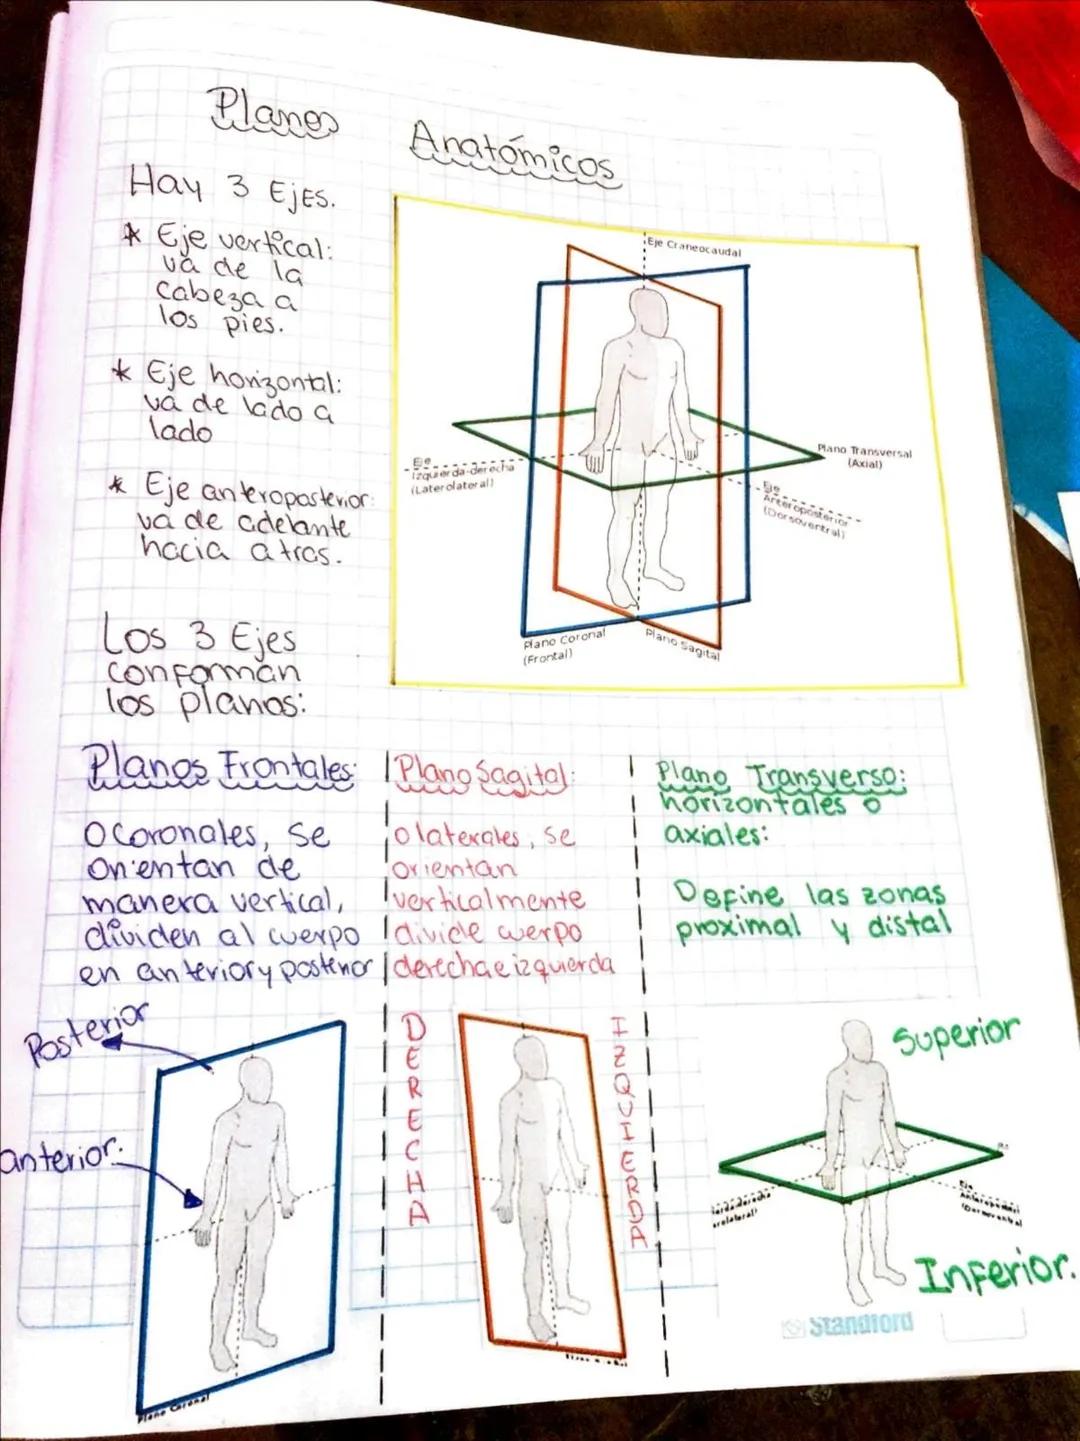 Planos Anatómicos
Hay 3 EjES.
* Eje vertical:
va de la
cabeza a
los pies.
* Eje horizontal:
va de lado a
lado
* Eje anteroposterior:
va de adelante
hacia atras.
Eje Craneocaudal
Eje
Izquierda-derecha
(Laterolateral)
Plano Transversal
(Axial)
Eje
Anteroposterior
(Dorsoventral)
Plano Coronal
(Frontal)
Plano Sagital
Los 3 Ejes
conforman
los planos:
Planos Frontales:
O coronales, se
orientan de
manera vertical,
dividen al cuerpo
en anterior y posterior
Posterior
anterior.
Plano Coronal
Plano Sagital:
o laterales, se
orientan
verticalmente
divide cuerpo
derecha e izquierda
DERECHA
IZQUIERDA
Plano Transverso:
horizontales o
axiales:
Define las zonas
proximal y distal
Superior
Eje
Anteroposterior
(Dorsoventral
Inferior.
Standford